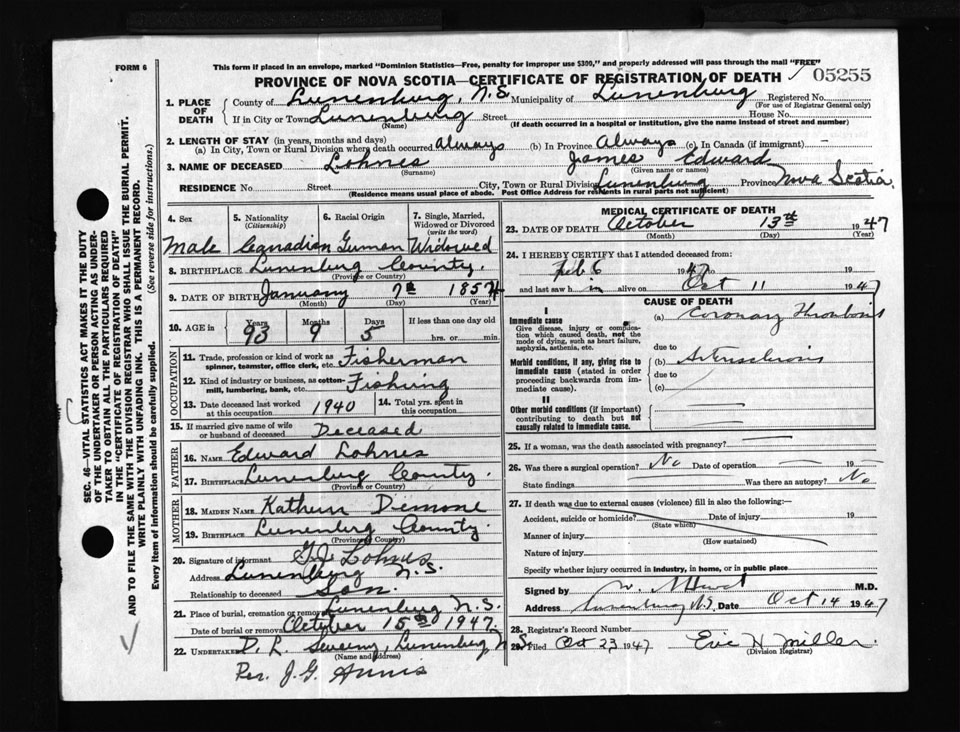 FORM 6
This form if placed in an envelope, marked "Dominion Statistics—Free, penalty for improper use $300," and properly addressed will pass through the mail "FREE"
PROVINCE OF NOVA SCOTIA—CERTIFICATE OF REGISTRATION OF DEATH 05255
1. PLACE OF DEATH
County of Lunenburg, N.S. Municipality of Lunenburg Registered No.
(For use of Registrar General only)
If in City or Town Lunenburg Street House No.
(Name) (If death occurred in a hospital or institution, give the name instead of street and number)
2. LENGTH OF STAY (in years, months and days)
(a) In City, Town or Rural Division where death occurred always (b) In Province Always (c) In Canada (if immigrant) —
3. NAME OF DECEASED Lohnes James Edward
(Surname) (Given name or names)
RESIDENCE No. Street City, Town or Rural Division Lunenburg Province Nova Scotia
(Residence means usual place of abode. Post Office Address for residents in rural parts not sufficient)
4. Sex 5. Nationality (Citizenship) 6. Racial Origin 7. Single, Married, Widowed or Divorced (write the word)
Male Canadian German Widowed
8. BIRTHPLACE Lunenburg County.
(Province or Country)
9. DATE OF BIRTH January 7th 1854
(Month) (Day) (Year)
10. AGE in Years Months Days If less than one day old
93 9 5 hrs. or min.
OCCUPATION
11. Trade, profession or kind of work as spinner, teamster, office clerk, etc. Fisherman
12. Kind of industry or business, as cotton-mill, lumbering, bank, etc. Fishing
13. Date deceased last worked at this occupation 1940 14. Total yrs. spent in this occupation
15. If married give name of wife or husband of deceased Deceased
FATHER
16. Name Edward Lohnes
17. Birthplace Lunenburg County.
(Province or Country)
MOTHER
18. MAIDEN NAME Kathern Demone
19. BIRTHPLACE Lunenburg County.
(Province or Country)
20. Signature of informant Lohnes
Address Lunenburg N.S.
Relationship to deceased Son.
21. Place of burial, cremation or removal Lunenburg N.S.
Date of burial or removal October 15th 1947.
22. UNDERTAKER D. L. Lunenburg N.S.
(Name and address)
Per. J. G. Annis
MEDICAL CERTIFICATE OF DEATH
23. DATE OF DEATH October 13th 1947
(Month) (Day) (Year)
24. I HEREBY CERTIFY that I attended deceased from:
Feb. 6 1947 to 19
and last saw h m alive on Oct 11 1947
CAUSE OF DEATH
I
Immediate cause (a) Coronary Thrombosis
Give disease, injury or complication which caused death, not the mode of dying, such as heart failure, asphyxia, asthenia, etc.
due to
Morbid conditions, if any, giving rise to immediate cause (stated in order proceeding backwards from immediate cause). (b) Arterosclerosis
due to
(c)
II
Other morbid conditions (if important) contributing to death but not causally related to immediate cause.
25. If a woman, was the death associated with pregnancy?
26. Was there a surgical operation? No Date of operation 19
State findings Was there an autopsy? No
27. If death was due to external causes (violence) fill in also the following:—
Accident, suicide or homicide? Date of injury 19
(State which)
Manner of injury
(How sustained)
Nature of injury
Specify whether injury occurred in industry, in home, or in public place
Signed by M.D.
Address Lunenburg N.S. Date Oct 14 1947
28. Registrar's Record Number
29. Filed Oct 23 1947 Eric H. Miller.
(Division Registrar)
SEC. 46—VITAL STATISTICS ACT MAKES IT THE DUTY
OF THE UNDERTAKER OR PERSON ACTING AS UNDER-
TAKER TO OBTAIN ALL THE PARTICULARS REQUIRED
IN THE "CERTIFICATE OF REGISTRATION OF DEATH"
AND TO FILE THE SAME WITH THE DIVISION REGISTRAR WHO SHALL ISSUE THE BURIAL PERMIT.
WRITE PLAINLY WITH UNFADING INK. THIS IS A PERMANENT RECORD.
Every item of information should be carefully supplied. (See reverse side for instructions.)